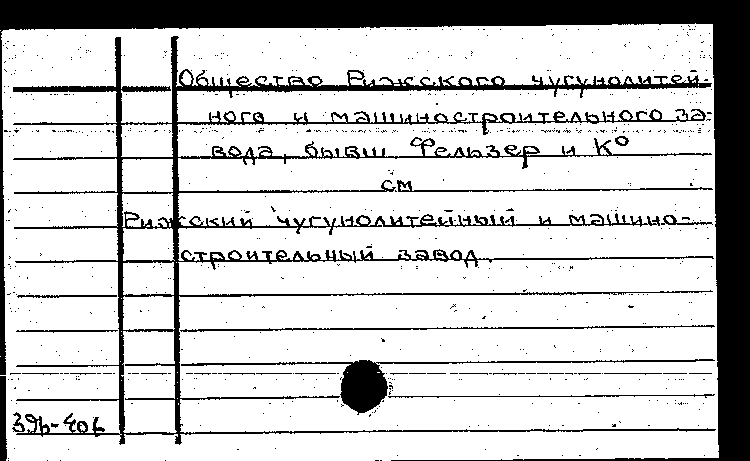 Общество Рижского чугунолитей-
ного и машиностроительного за-
вода, бывш Фельзер и К⁰
см
Рижский чугунолитейный и машино-
строительный завод.